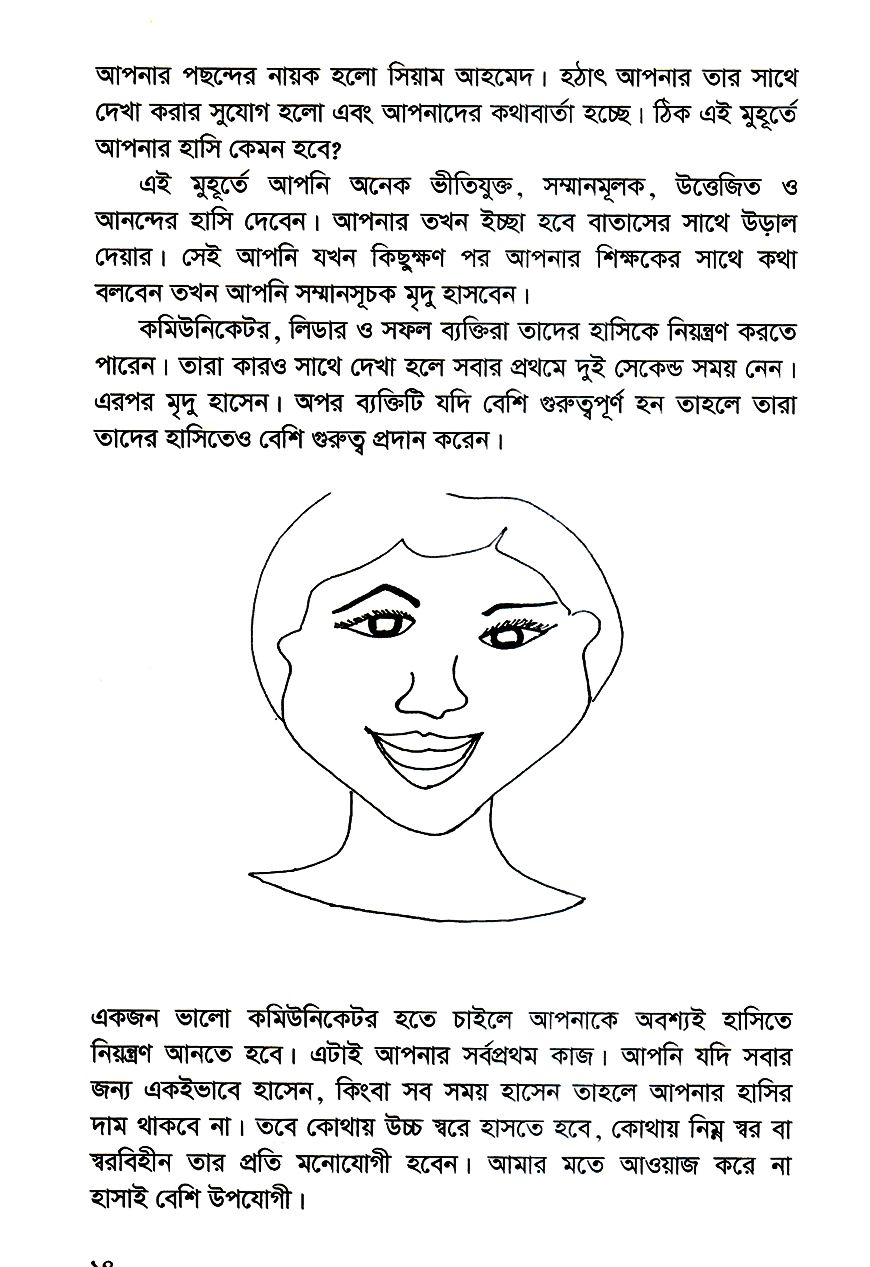 আপনার পছন্দের নায়ক হলো সিয়াম আহমেদ। হঠাৎ আপনার তার সাথে
দেখা করার সুযোগ হলো এবং আপনাদের কথাবার্তা হচ্ছে। ঠিক এই মুহূর্তে
আপনার হাসি কেমন হবে?
এই মুহূর্তে আপনি অনেক ভীতিযুক্ত, সম্মানমূলক, উত্তেজিত ও
আনন্দের হাসি দেবেন। আপনার তখন ইচ্ছা হবে বাতাসের সাথে উড়াল
দেয়ার। সেই আপনি যখন কিছুক্ষণ পর আপনার শিক্ষকের সাথে কথা
বলবেন তখন আপনি সম্মানসূচক মৃদু হাসবেন।
কমিউনিকেটর, লিডার ও সফল ব্যক্তিরা তাদের হাসিকে নিয়ন্ত্রণ করতে
পারেন। তারা কারও সাথে দেখা হলে সবার প্রথমে দুই সেকেন্ড সময় নেন।
এরপর মৃদু হাসেন। অপর ব্যক্তিটি যদি বেশি গুরুত্বপূর্ণ হন তাহলে তারা
তাদের হাসিতেও বেশি গুরুত্ব প্রদান করেন।
একজন ভালো কমিউনিকেটর হতে চাইলে আপনাকে অবশ্যই হাসিতে
নিয়ন্ত্রণ আনতে হবে। এটাই আপনার সর্বপ্রথম কাজ। আপনি যদি সবার
জন্য একইভাবে হাসেন, কিংবা সব সময় হাসেন তাহলে আপনার হাসির
দাম থাকবে না। তবে কোথায় উচ্চ স্বরে হাসতে হবে, কোথায় নিম্ন স্বর বা
স্বরবিহীন তার প্রতি মনোযোগী হবেন। আমার মতে আওয়াজ করে না
হাসাই বেশি উপযোগী।